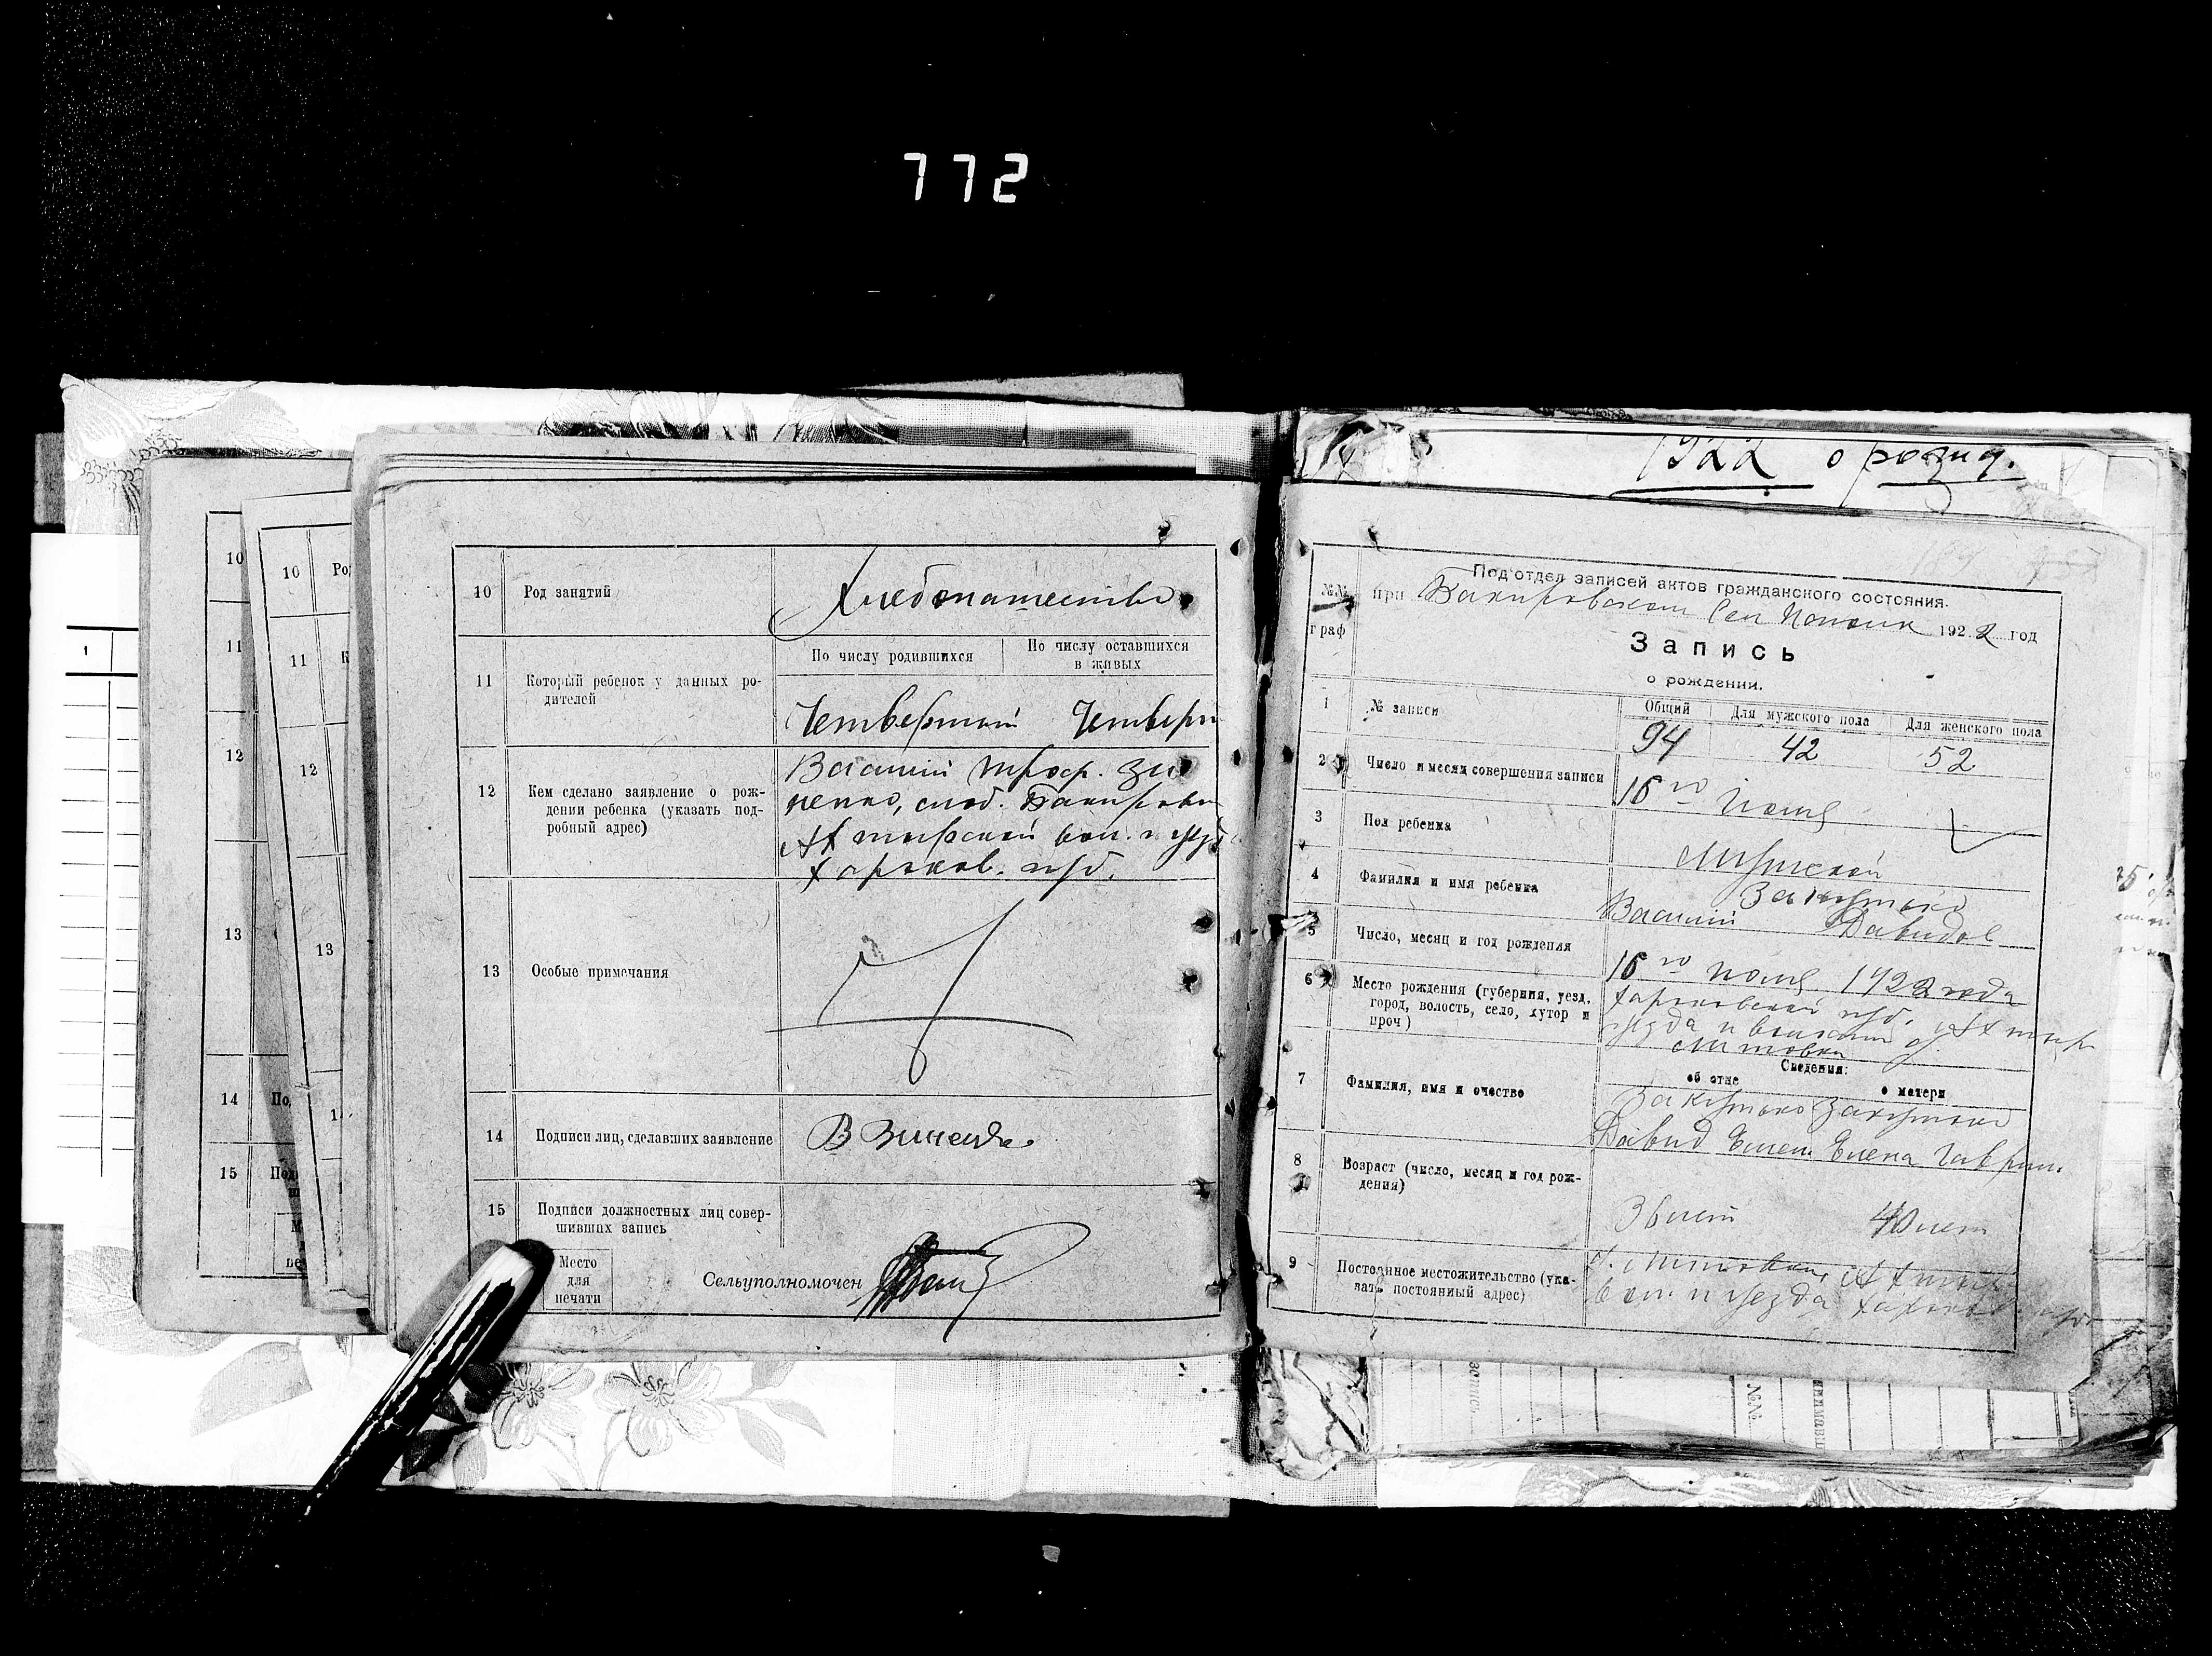 772
10 Род занятий Хлебопашество
11 Который ребенок у данных ро-
дителей
По числу родившихся
По числу оставшихся
в живых
Четвертый Четверт
12 Кем сделано заявление о рож-
дении ребенка (указать под-
робный адрес)
Василий Троф. Зи
ненко, слоб. Бакировки
Ахтырской вол. и уезд
Харьков. губ.
13 Особые примечания
14 Подписи лиц, сделавших заявление
В Зиненко
15 Подписи должностных лиц совер-
шивших запись
Место
для
печати
Сельуполномочен
10
11
12
13
14
15
10 Ро
11 К
12
13
1922 о рожд.
№№
граф
Под'отдел записей актов гражданского состояния.
при Бакировском Сел 1922 год
Запись
о рождении.
1 № записи
Общий Для мужского пола Для женского пола
94 42 52
2 Число и месяц совершения записи
16го
3 Пол ребенка
Мужской
4 Фамилия и имя ребенка
Закутько
Василий Давидов
5 Число, месяц и год рождения
16го 1922 года
6 Место рождения (губерния, уезд,
город, волость, село, хутор и
проч)
Харьковской губ. Ахтыр
уезда и волости
Литовка
Сведения:
об отце о матери
7 Фамилия, имя и очество
Закутько Закутько
Давид Елена Гаврил.
8 Возраст (число, месяц и год рож-
дения)
36 лет 40 лет
9 Постоянное местожительство (ука-
зать постоянный адрес)
Литовки, Ахтыр
вол. и уезда Харьков губ.